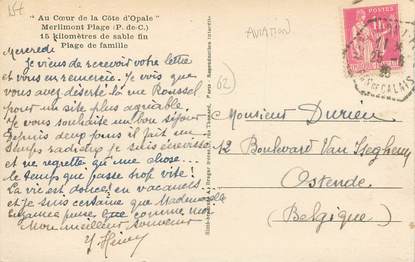 AVIATION
" Au Cœur de la Côte d'Opale "
Merlimont Plage (P.-de-C.)
15 kilomètres de sable fin
Plage de famille
Mercredi
Je viens de recevoir votre lettre
et vous en remercie. Je vois que
vous avez déserté la rue Roussel
pour un site plus agréable.
Je vous souhaite un bon séjour
Depuis deux jours il fait un
temps radieux je suis énervée
et ne regrette qu'une chose...
le temps que passe trop vite!
La vie est douce en vacances
et je suis certaine que Mademoiselle
Suzanne pense que comme moi
Mon meilleur souvenir
Y. Henry
62
Monsieur Durieu
12 Boulevard Van Iseghem
Ostende
(Belgique)